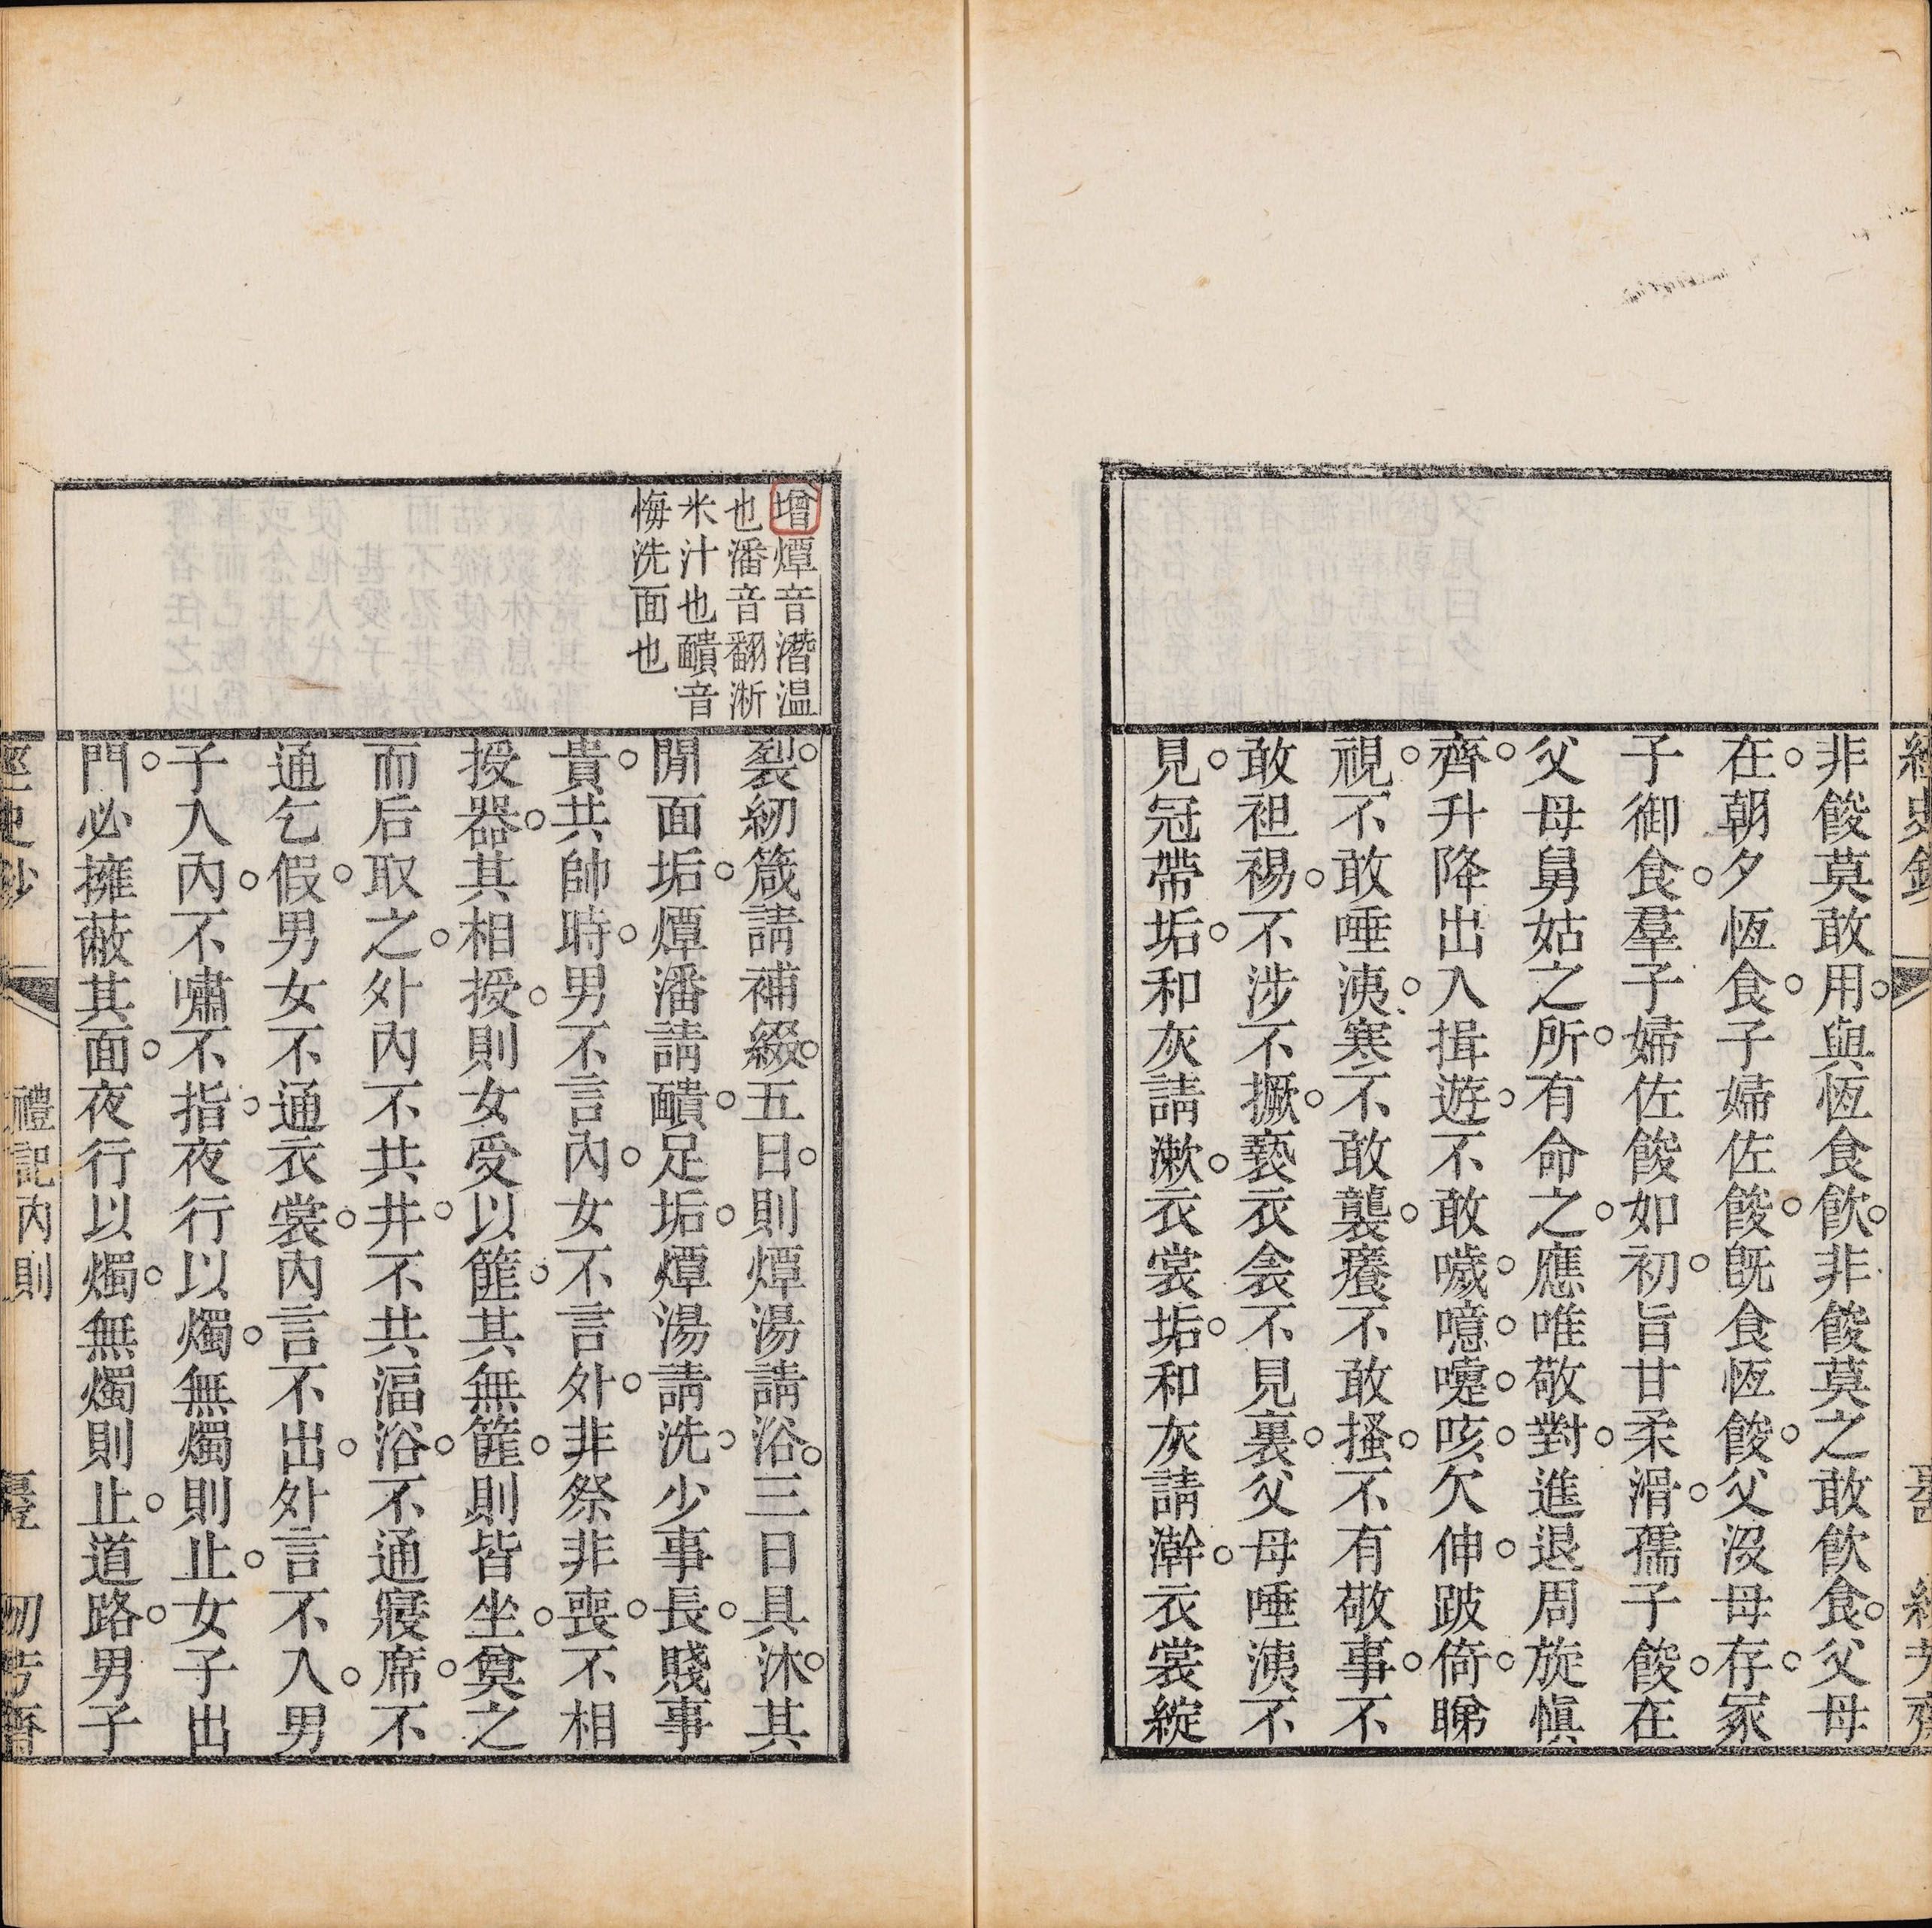 非餕莫敢用與恆食飲非餕莫之敢飲食父母
在朝夕恆食子婦佐餕旣食恆餕父沒母存冢
子御食羣子婦佐餕如初旨甘柔滑孺子餕在
父母舅姑之所有命之應唯敬對進退周旋愼
齊升降出入揖遊不敢噦噫嚏咳欠伸跛倚睇
視不敢唾洟寒不敢襲癢不敢搔不有敬事不
敢袒裼不涉不撅褻衣衾不見裏父母唾洟不
見冠帶垢和灰請漱衣裳垢和灰請澣衣裳綻
增燂音潛温
也潘音翻淅
米汁也靧音
悔洗面也
裂紉箴請補綴五日則燂湯請浴三日具沐其
閒面垢燂潘請靧足垢燂湯請洗少事長賤事
貴共帥時男不言內女不言外非祭非喪不相
授器其相授則女受以篚其無篚則皆坐奠之
而后取之外內不共井不共湢浴不通寢席不
通乞假男女不通衣裳內言不出外言不入男
子入內不嘯不指夜行以燭無燭則止女子出
門必擁蔽其面夜行以燭無燭則止道路男子
禮記內則